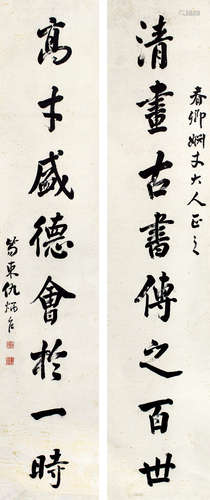 春卿姻丈大人正之
清畫古書傳之百世
高才盛德會於一時
笏東仇炳台